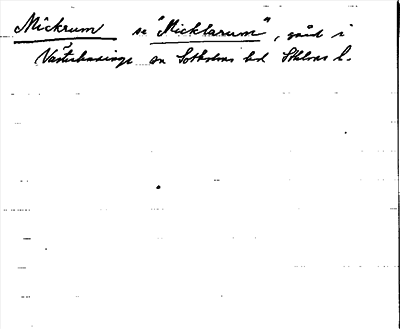 Mickrum se "Micklarum", gård i
Västerhaninge sn Sotholms hd Sthlms l.